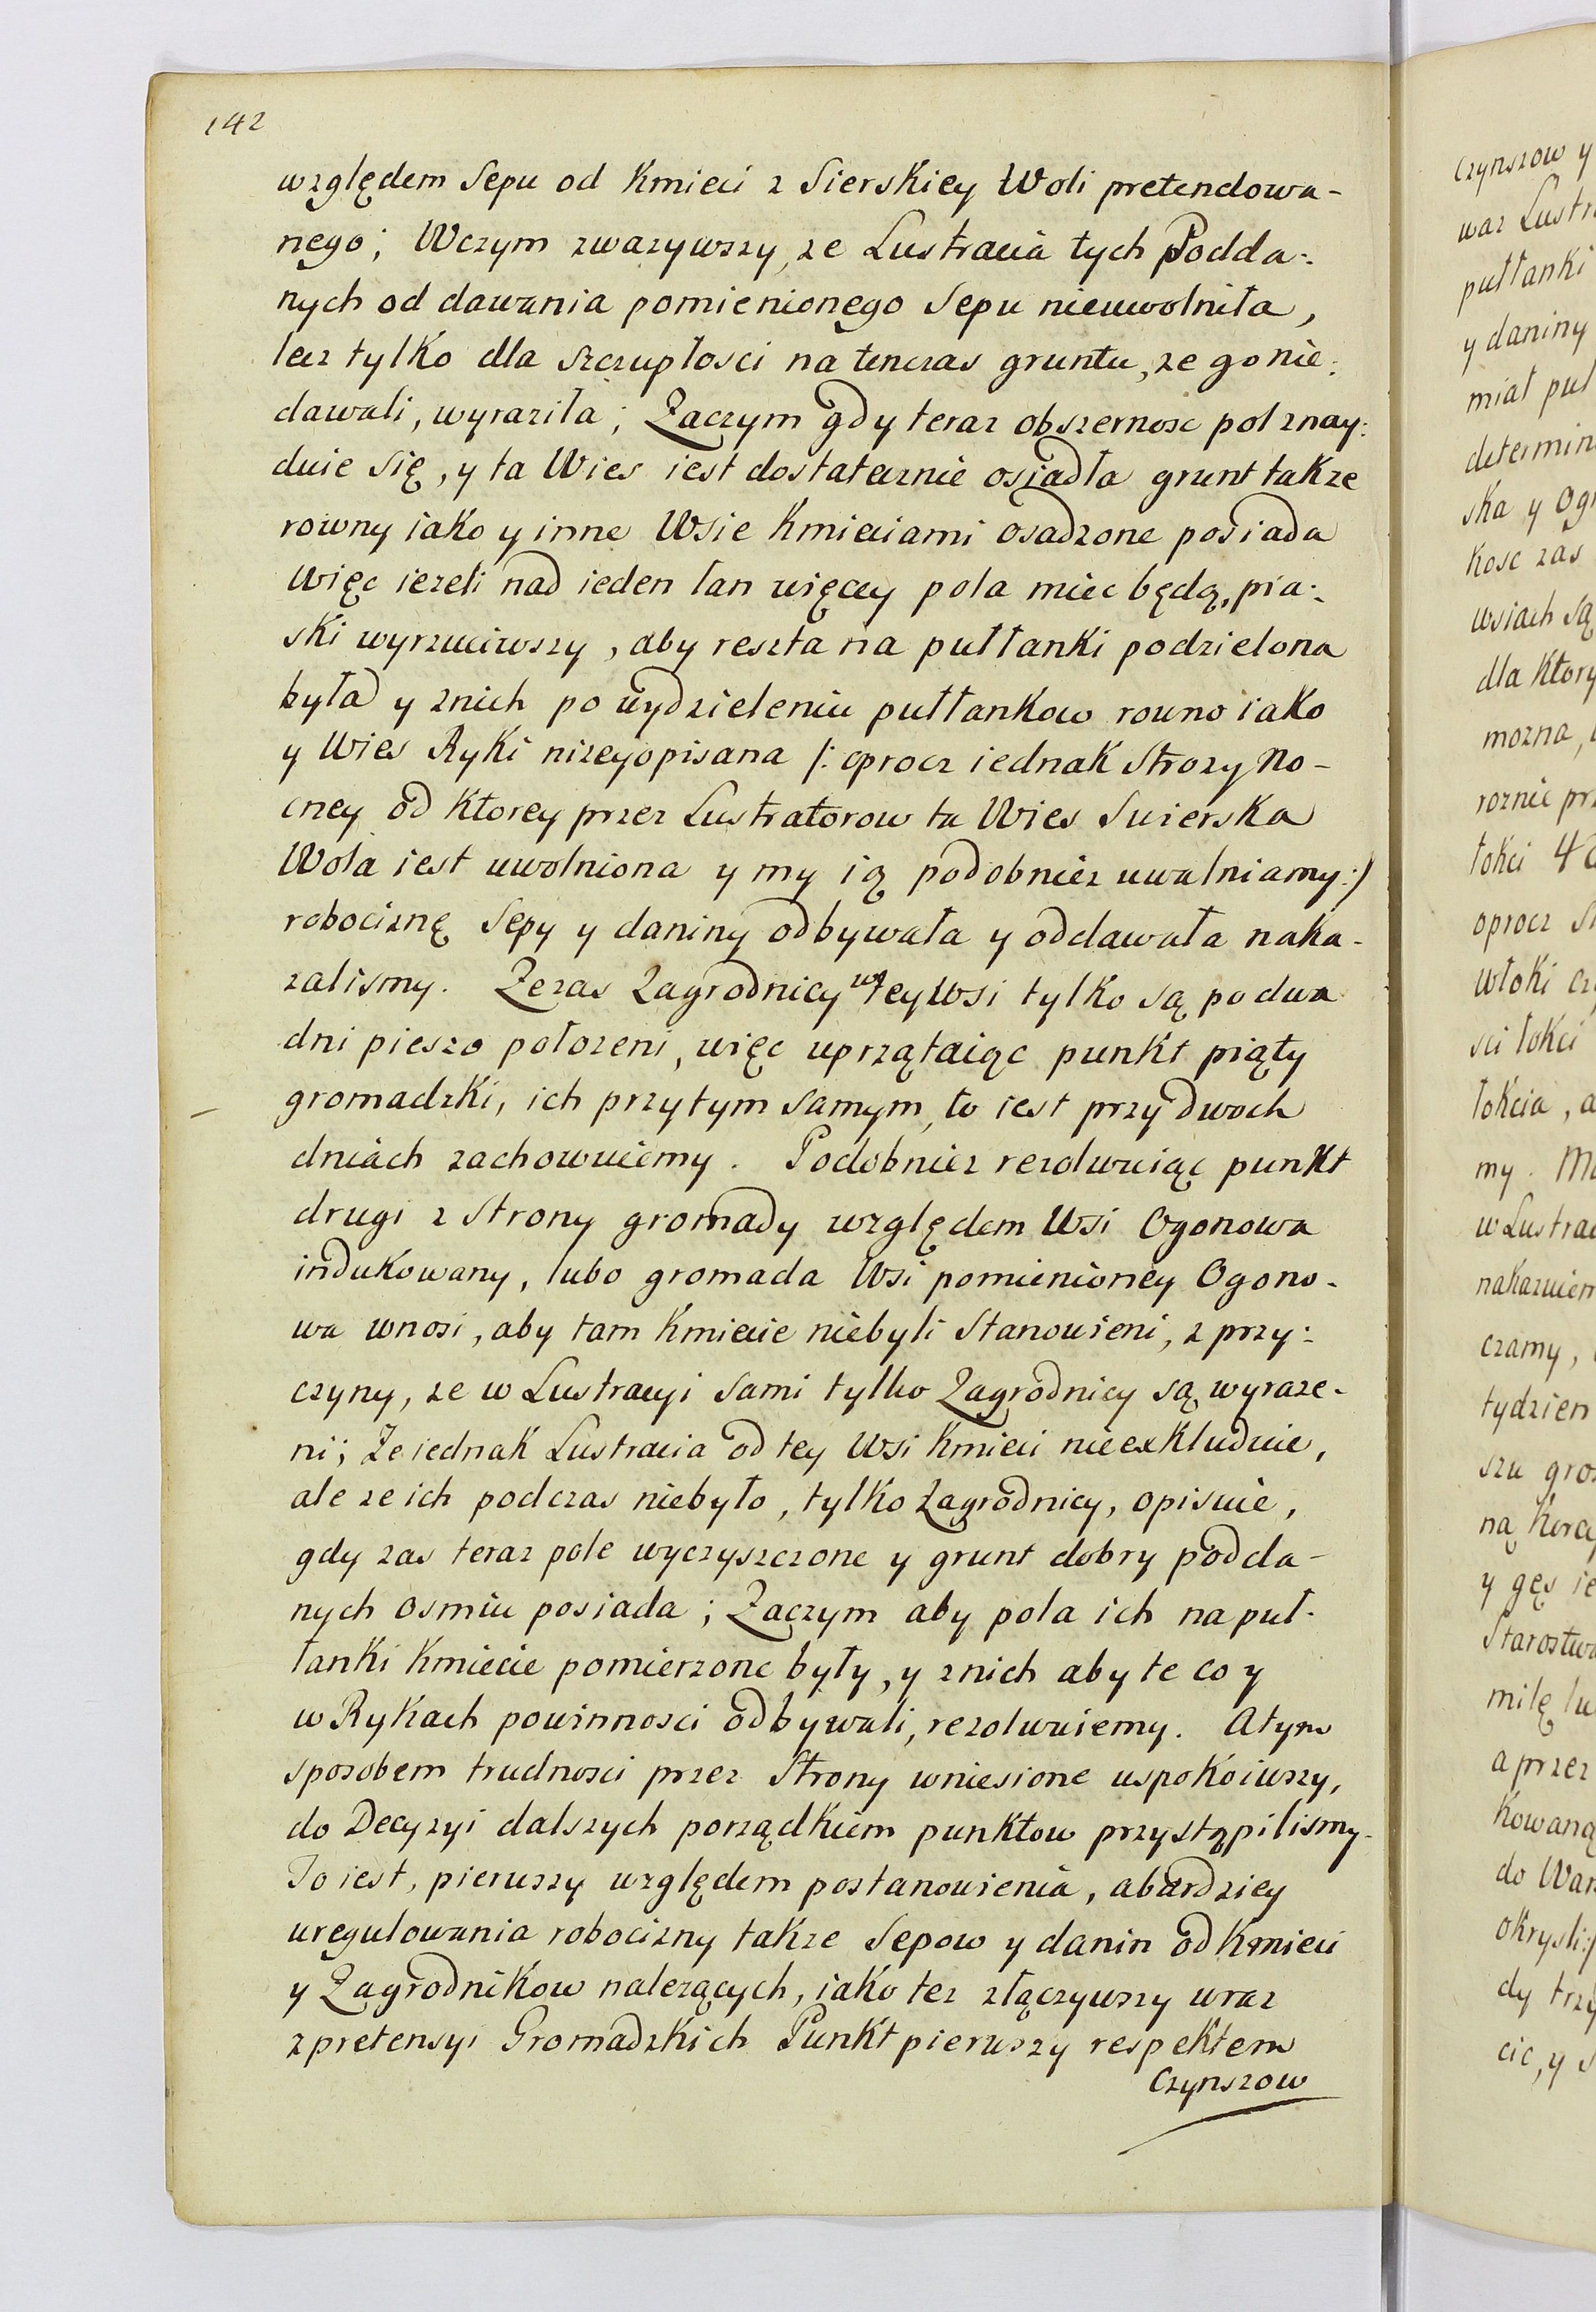 142
względem Sepu od Kmieci z Sierskiey Woli pretendowa-
nego; Wczym zwazywszy, ze Lustracia tych Podda-:
nych od dawania pomienionego Sepu nieuwolniła,
lecz tylko dla szczupłosci na tenczas gruntu, ze go nie:
dawali, wyraziła; Zaczym gdy teraz obszernosc pol znay:
duie się, y ta Wies iest dostatecznie osiadła grunt takze
rowny iako y inne Wsie Kmieciami osadzone posiada
Więc iezeli nad ieden łan więcey pola miec będą, pia-:
ski wyrzuciwszy, aby reszta na pułłanki podzielona
była y znich po wydzieleniu pułłankow rowno iako
y Wies Ryki nizeyopisana /: oprocz iednak Strozy No-
cney od Ktorey przez Lustratorow ta Wies Swierska
Wola iest uwolniona y my ią podobniez uwalniamy:/
robociznę Sepy y daniny odbywała y oddawała naka-
zalismy. Zezas Zagrodnicy w teyWsi tylko są po dwa
dni pieszo połozeni, więc uprzątaiąc punkt piąty
gromadzki, ich przytym samym, to iest przy dwoch
dniach zachowuiemy. Podobniez rezolwuiąc punkt
drugi z Strony gromady względem Wsi Ogonowa
indukowany, lubo gromada Wsi pomienioney Ogono-
wa wnosi, aby tam Kmiecie niebyli Stanowieni, z przy-:
czyny, ze w Lustracyi sami tylko Zagrodnicy są wyraze-
ni; Ze iednak Lustracia od tey Wsi Kmieci nieexkluduie,
ale ze ich podczas niebyło, tylko Zagrodnicy, opisuie,
gdy zas teraz pole wyczyszczone y grunt dobry podda-
nych osmiu posiada; Zaczym aby pola ich na puł-
łanki Kmiecie pomierzone były, y znich aby te co y
w Rykach powinnosci odbywali, rezolwuiemy. Atym
sposobem trudnosci przez Strony wniesione uspokoiwszy,
do Decyzyi dalszych porządkiem punktow przystąpilismy.
To iest, pierwszy względem postanowienia, abardziey
uregulowania robocizny takze Sepow y danin od Kmieci
y Zagrodnikow nalezących, iako tez złączywszy wraz
z pretensyi Gromadzkich Punkt pierwszy respektem
Czynszow
Czynszow y
waz Lustr
pułłanki
y daniny
miał puł
determin
ska y Ogr
Kosc zas
wsiach są
dla Ktory
mozna,
roznie prz
łokci
oprocz
włoki
sci łokci
łokcia, a
my.
w Lustrac
nakazuiem
czamy,
tydzien
szu gro
ną
y gęs ie
Starostw
milę lu
aprzez
Kowaną
do War
okrysli:/
dy trzy
cic, y